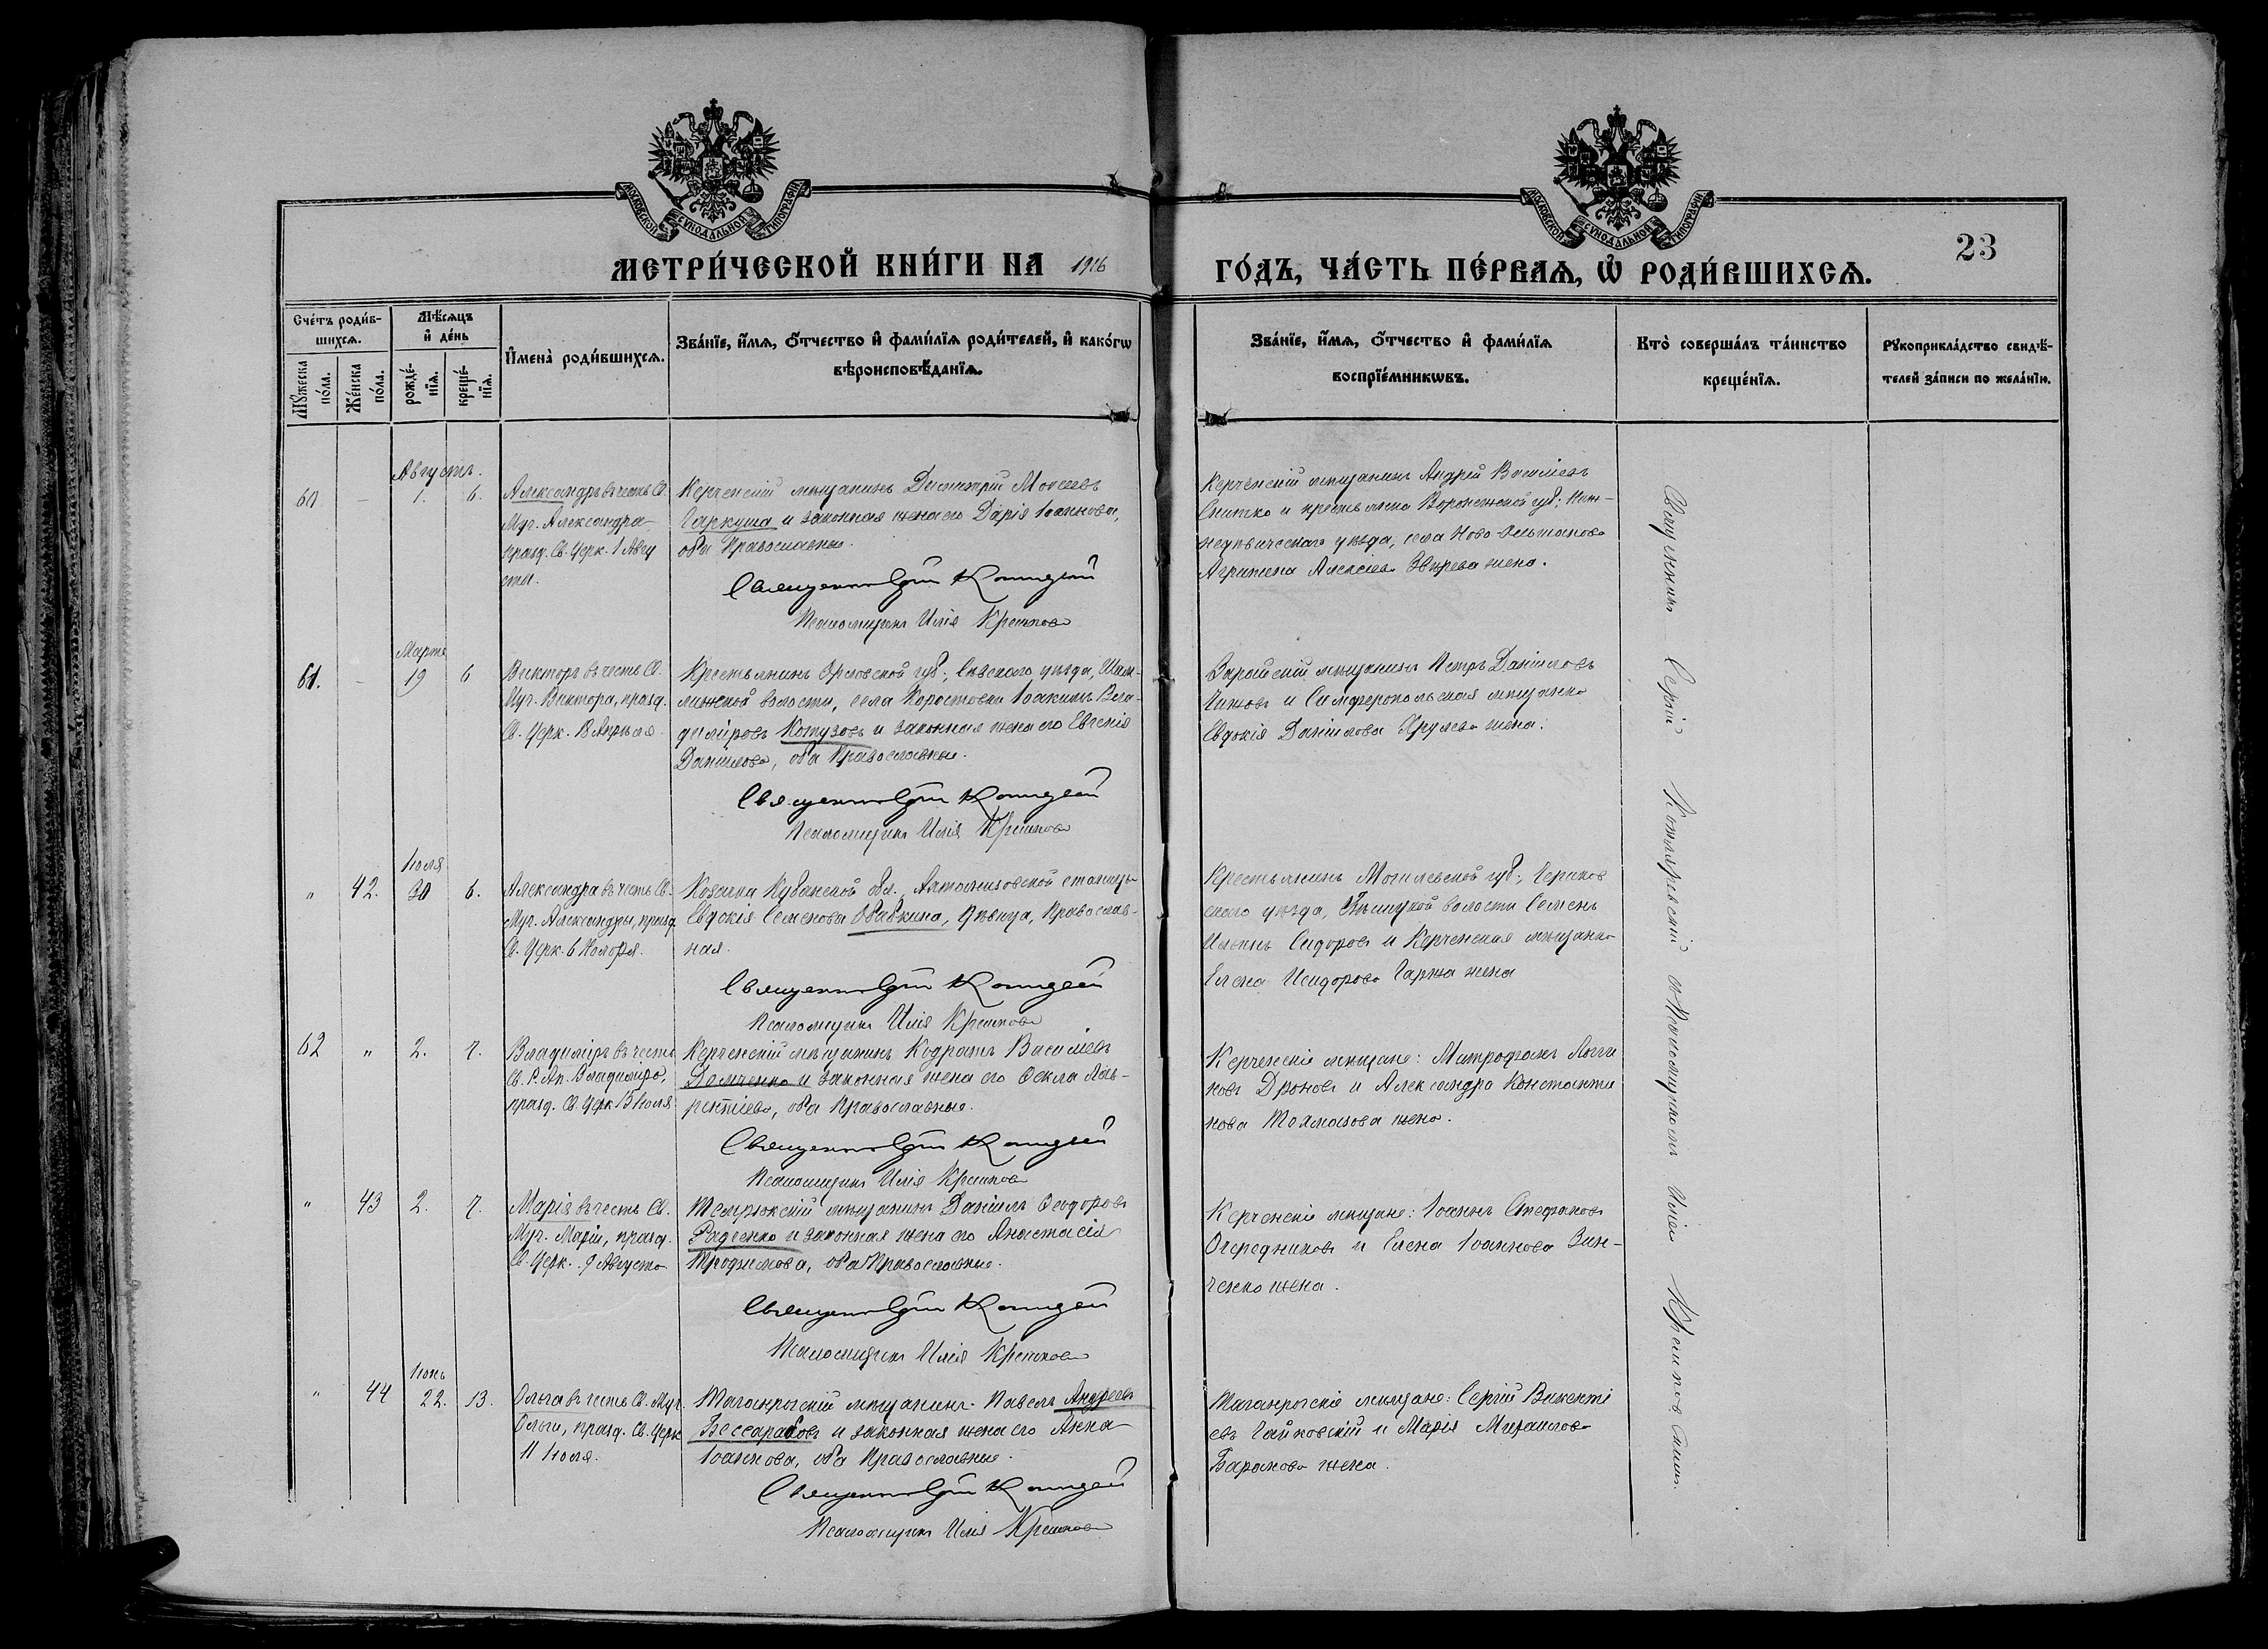 МОСКОВСКОЙ СѴНОДАЛЬНОЙ ТИПОГРАФІИ
МОСКОВСКОЙ СѴНОДАЛЬНОЙ ТИПОГРАФІИ
МЕТРИ́ЧЕСКОЙ КНИ́ГИ НА 1916 ГО́ДЪ, ЧА́СТЬ ПЕ́РВАѦ, Ѡ҆ РОДИ́ВШИХСѦ.
23
Сче́тъ роди́в-
шихсѧ.
Мꙋжеска по́ла.
Же́нска по́ла.
Мѣ́сѧцъ
и҆ де́нь
рожде́-
нїѧ.
креще́-
нїѧ.
И҆мена̀ роди́вшихсѧ.
Зва́нїе, и҆́мѧ, ѻ҆́тчество и҆ фами́лїѧ роди́телей, и҆ како́гѡ
вѣроисповѣ́данїѧ.
Зва́нїе, и҆́мѧ, ѻ҆́тчество и҆ фами́лїѧ
воспрїе́мникѡвъ.
Кто̀ соверша́лъ та́инство
креще́нїѧ.
Рꙋкоприкла́дство свидѣ́-
телей за́писи по жела́нїю.
Августъ.
60 - 1. 6.
Александръ въ честь Св.
Муч. Александра
празд. Св. Церк. 1 Авгу
ста.
Керченскій мѣщанинъ Димитрій Моисеевъ
Гаркуша и законная жена его Дарія Іоаннова,
оба Православные.
Священникъ
Псаломщикъ Илія
Керченскій мѣщанинъ Андрей Василіевъ
Снитко и крестьянка Воронежской губ., Ниж-
недѣвическаго уѣзда, села Ново-
Агрипина Алексіева Звѣрева жена.
Марта
61. - 19 6
Викторъ въ честь Св.
Муч. Виктора, празд.
Св. Церк. 18 Апрѣля.
Крестьянинъ Орловской губ., Сѣвскаго уѣзда,
волости, села Коростовки Іоакимъ Вла-
диміровъ Котузовъ и законная жена его Евгенія
Данилова, оба Православные.
Священникъ
Псаломщикъ Илія
мѣщанинъ Петръ Даніиловъ
Чижовъ и Симферопольская мѣщанка
Евдокія Даніилова Хрулева жена.
Іюля
" 42. 30 6.
Александра въ честь Св.
Муч. Александры, празд.
Св. Церк. 6 Ноября.
Козачка Кубанской обл., станицы
Евдокія Семенова Обабкина, дѣвица, Православ-
ная.
Священникъ
Псаломщикъ Илія
Крестьянинъ Могилевской губ., Чериков
скаго уѣзда, волости Семенъ
Ильинъ Сидоровъ и Керченская мѣщанка
Елена Исидорова жена
62 " 2. 7.
Владиміръ въ честь
Св. Р. Ап. Владиміра,
празд. Св. Церк. 15 Іюля
Керченскій мѣщанинъ Кодратъ Василіевъ
Демченко и законная жена его Ѳекла Лав-
рентіева, оба Православные.
Священникъ
Псаломщикъ Илія
Керченскіе мѣщане: Митрофанъ Логги
новъ Дроновъ и Александра Константи
нова жена.
" 43 2. 7.
Марія въ честь Св.
Муч. Маріи, празд.
Св. Церк. 9 Августа
Темрюкскій мѣщанинъ Даніилъ Ѳеодоровъ
Радченко и законная жена его Анастасія
Трофимова, оба Православные.
Священникъ
Псаломщикъ Илія
Керченскіе мѣщане: Іоаннъ Стефановъ
Очередниковъ и Елена Іоаннова Зин-
ченко жена.
Іюнь
" 44 22. 13.
Ольга въ честь Св. Муч.
Ольги, празд. Св. Церк
11 Іюля.
Таганрогскій мѣщанинъ Павелъ Андреевъ
Бессарабовъ и законная жена его Анна
Іоаннова, оба Православные.
Священникъ
Псаломщикъ Илія
Таганрогскіе мѣщане: Сергій Викенті
евъ Чайковскій и Марія Михаилова
Баранова жена.
Священникъ Сергій Котляревскій съ Псаломщикомъ Иліею